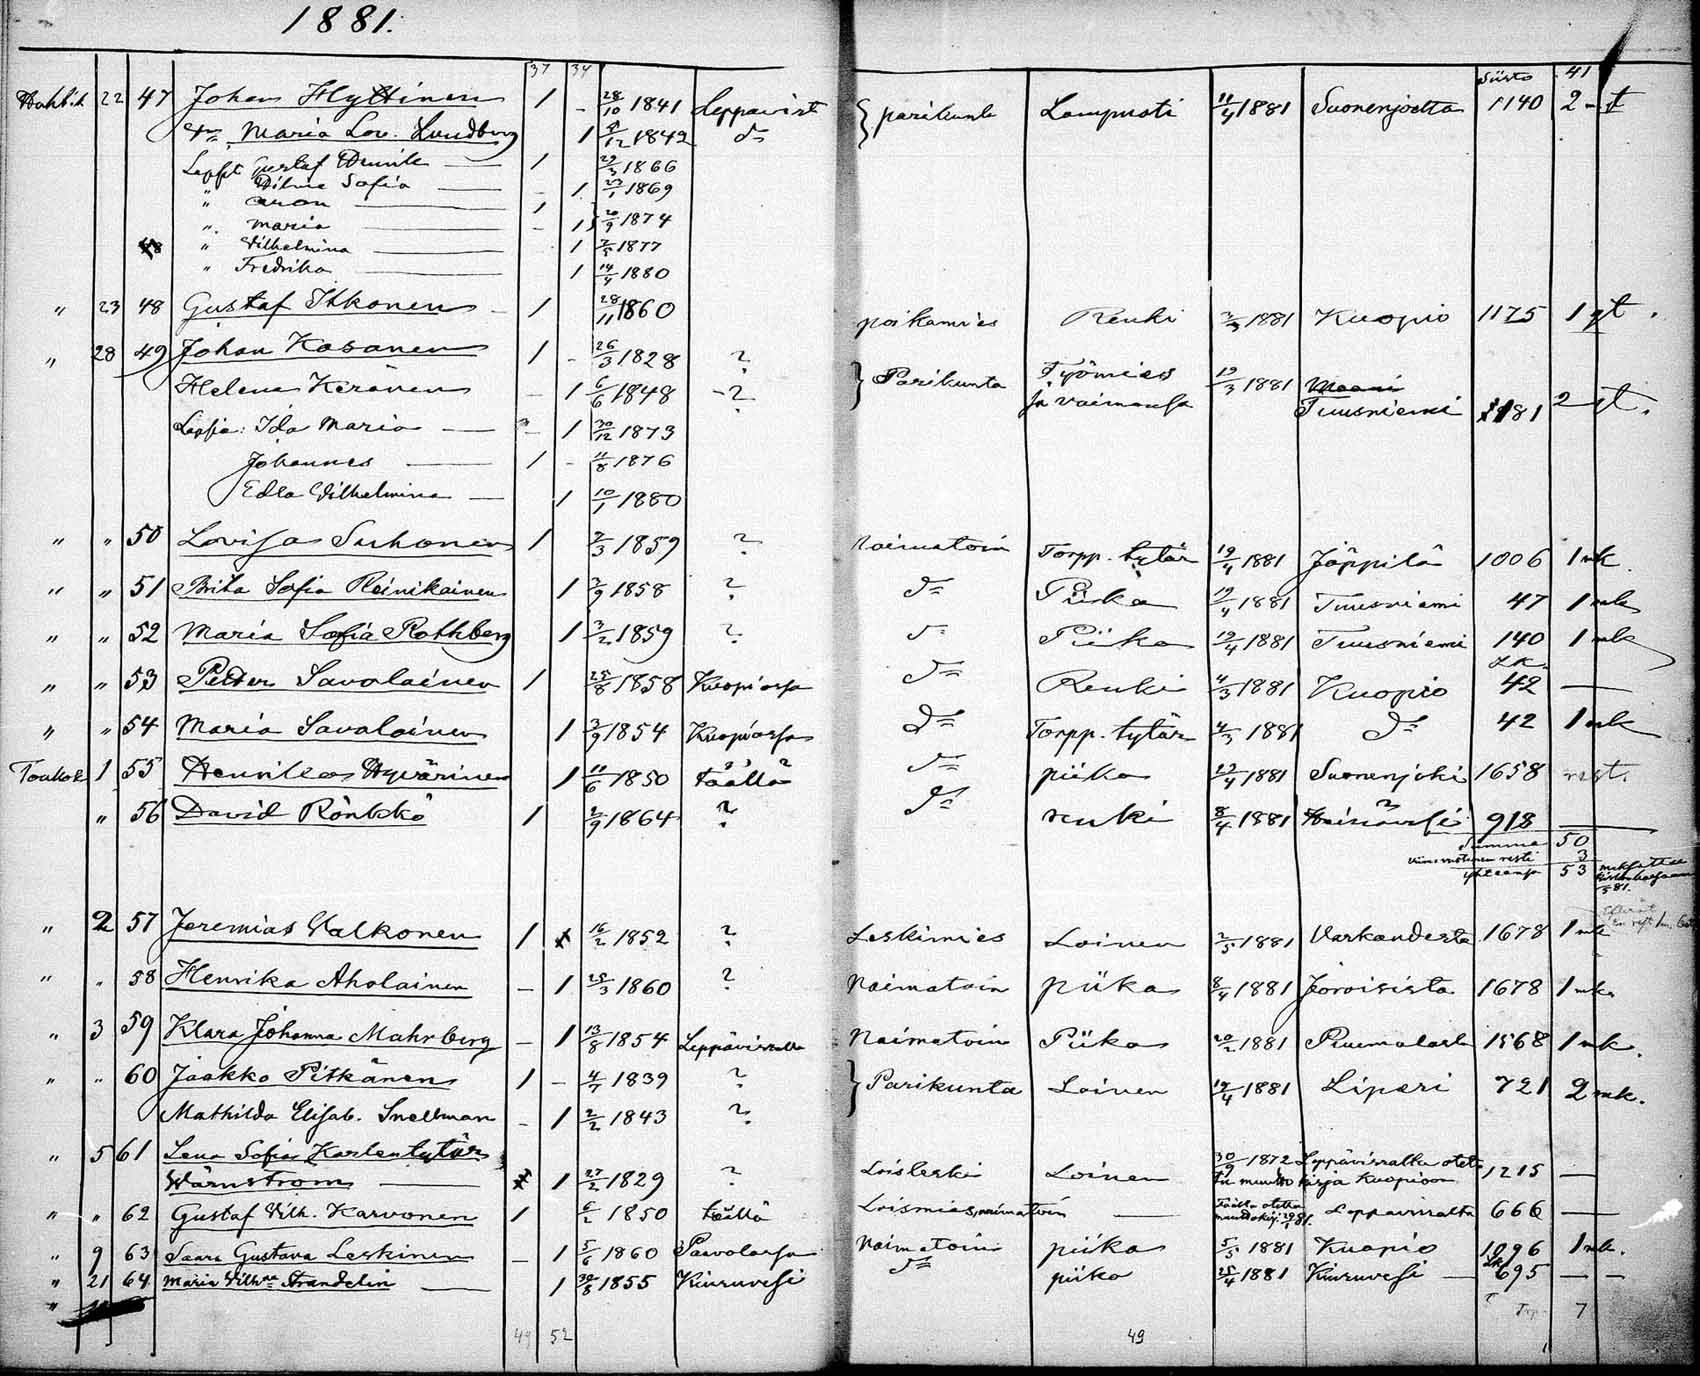 1881.
37 34 siirto 41
Huhtik 22 47 Johan Hyttinen 1 - 28/10 1841 Leppävirt } parikunta Lampuoti 11/4 1881 Suonenjoelta 1140 2
Maria Lov. Lundberg 1 /12 1842 d:o
Lapset Gustaf Henrik 1 29/3 1866
" Vilhe Sofia - 1 23/1 1869
" Aron 1
" Maria - 1 20/9 1874
" Vilhelmina 1 2/5 1877
" Fredrika 1 14/4 1880
" 23 48 Gustaf Itkonen - 1 28/11 1860 poikamies Renki 3/3 1881 Kuopio 1175 1 yt.
" 28 49 Johan Kasanen 1 - 26/3 1828 ? } Parikunta Työmies 19/3 1881
Helena Keränen - 1 6/6 1848 - ? ja vaimonsa Tuusniemi 1181 2 yt.
Lapsia: Ida Maria - 1 30/12 1873
Johannes 1 - 11/8 1876
Edla Vilhelmina 1 10/1 1880
" " 50 Lovisa Suhonen 1 2/3 1859 ? Naimatoin Torpp. tytär 19/4 1881 Jäppilä 1006 1 mk.
" " 51 Brita Sofia Reinikainen 1 7/9 1858 ? d:o Piika 19/4 1881 Tuusniemi 47 1 mk
" " 52 Maria Sofia Rothberg 1 3/2 1859 ? d:o Piika 19/4 1881 Tuusniemi 140 1 mk
" " 53 Petter Savolainen 1 25/8 1858 Kuopiossa d:o Renki 4/3 1881 Kuopio 42 —
" " 54 Maria Savolainen 1 3/9 1854 Kuopiossa d:o Torpp. tytär 4/3 1881 d:o 42 1 mk
Toukok 1 55 Henrikka Hyvärinen 1 11/6 1850 täällä d:o piika 19/4 1881 Suonenjoki 1658 rest.
" 56 David Rönkkö 1 2/9 1864 ? d:o renki 8/4 1881 Heinävesi 918 —
Summa 50
resti 3
yhteensä 53
" 2 57 Jeremias Valkonen 1 16/2 1852 ? Leskimies Loinen 2/5 1881 Varkaudesta 1678 1 mk
" " 58 Henrika Aholainen - 1 25/3 1860 ? Naimatoin piika 8/4 1881 Joroisista 1678 1 mk.
" 3 59 Klara Johanna Mahrberg - 1 13/8 1854 Leppävirralla Naimatoin Piika 20/2 1881 Puumalasta 1568 1 mk.
" " 60 Jaakko Pitkänen 1 - 4/7 1839 ? } Parikunta Loinen 19/4 1881 Liperi 721 2 mk.
Mathilda Elisab. Snellman - 1 2/2 1843 ?
" 5 61 Lena Sofia Karlentytär
Wärnström 1 27/2 1829 ? Loisleski Loinen 30/9 1872 Leppävirralta 1215 —
kirja Kuopioon
" " 62 Gustaf Vilh. Karvonen 1 6/2 1850 täällä Loismies, naimatoin — Leppävirralta 666 —
" 9 63 Saara Gustava Leskinen - 1 5/6 1860 Paavolassa Naimatoin piika 5/5 1881 Kuopio 1096 1 mk.
" 21 64 Maria Vilh:na Arandelin 1 30/8 1855 Kiuruvesi d:o piika 25/4 1881 Kiuruvesi - 695 — —
"
49 52 49 7